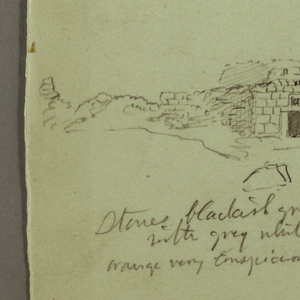 Stones blackish gr
with grey whit
orange very conspicuou